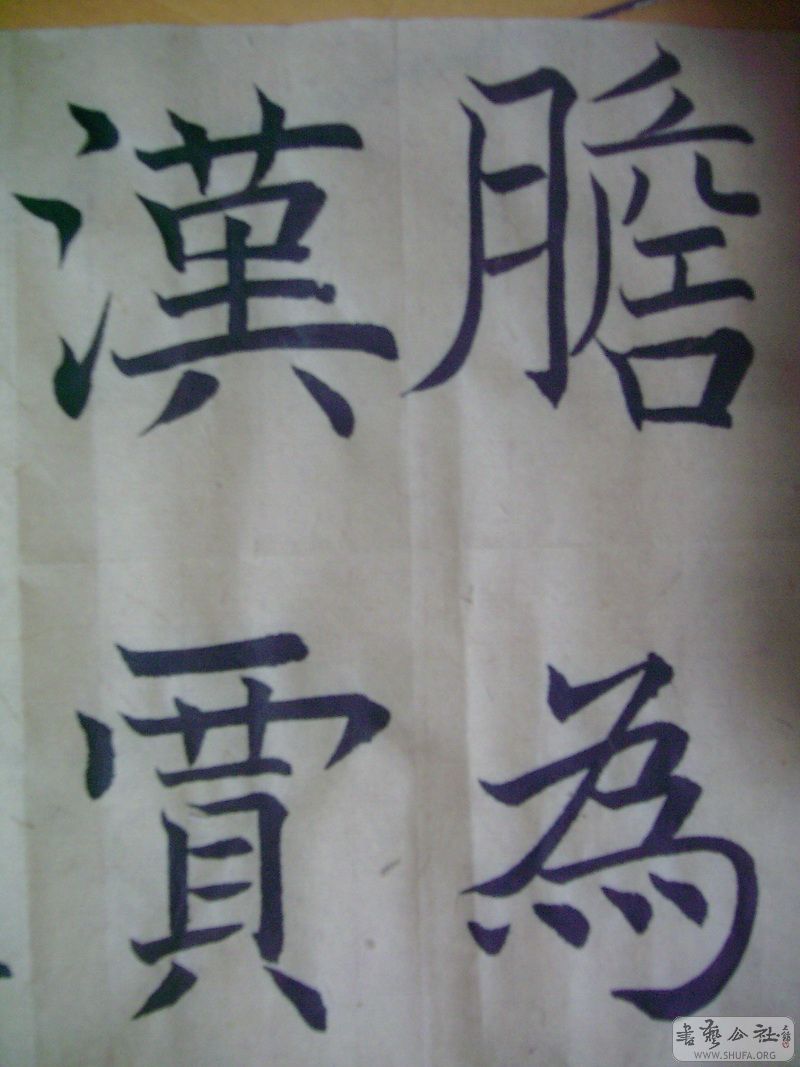 膽為
漢賈
書藝公社
WWW.SHUFA.ORG